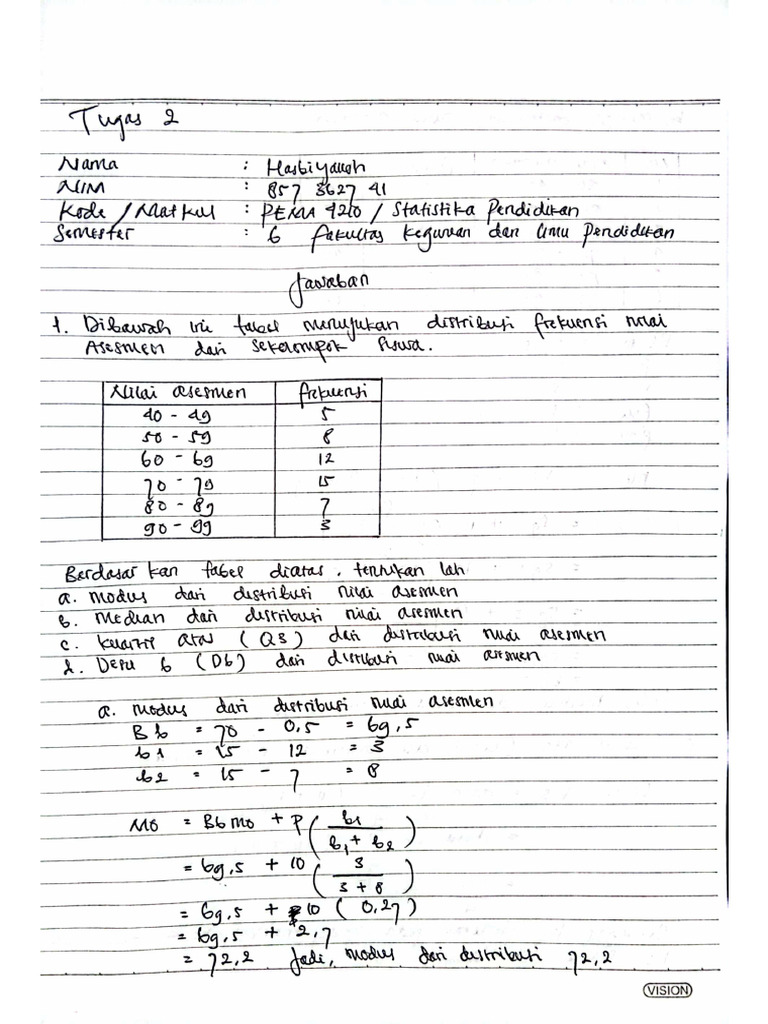 Tugas 2
Nama : Hasbiyauoh
NIM : 857 3627 41
Kode / Matkul : PEMA 4210 / Statistika Pendidikan
Semester : 6 Fakultas Keguruan dan Ilmu Pendidikan
Jawaban
1. Dibawah ini tabel menunjukan distribusi frekuensi nilai
Asesmen dari sekelompok siswa.
Nilai asesmen frekuensi
40 - 49 5
50 - 59 8
60 - 69 12
70 - 79 15
80 - 89 7
90 - 99 3
Berdasar kan tabel diatas, tentukan lah
a. modus dari distribusi nilai asesmen
b. Median dari distribusi nilai asesmen
c. kuartil atas (Q3) dari distribusi nilai asesmen
d. Desil 6 (D6) dari distribusi nilai asesmen
a. modus dari distribusi nilai asesmen
Bb = 70 - 0,5 = 69,5
b1 = 15 - 12 = 3
b2 = 15 - 7 = 8
Mo = Bb mo + P (b1 / b1 + b2)
= 69,5 + 10 (3 / 3 + 8)
= 69,5 + 10 (0,27)
= 69,5 + 2,7
= 72,2 Jadi, modus dari distribusi 72,2
VISION